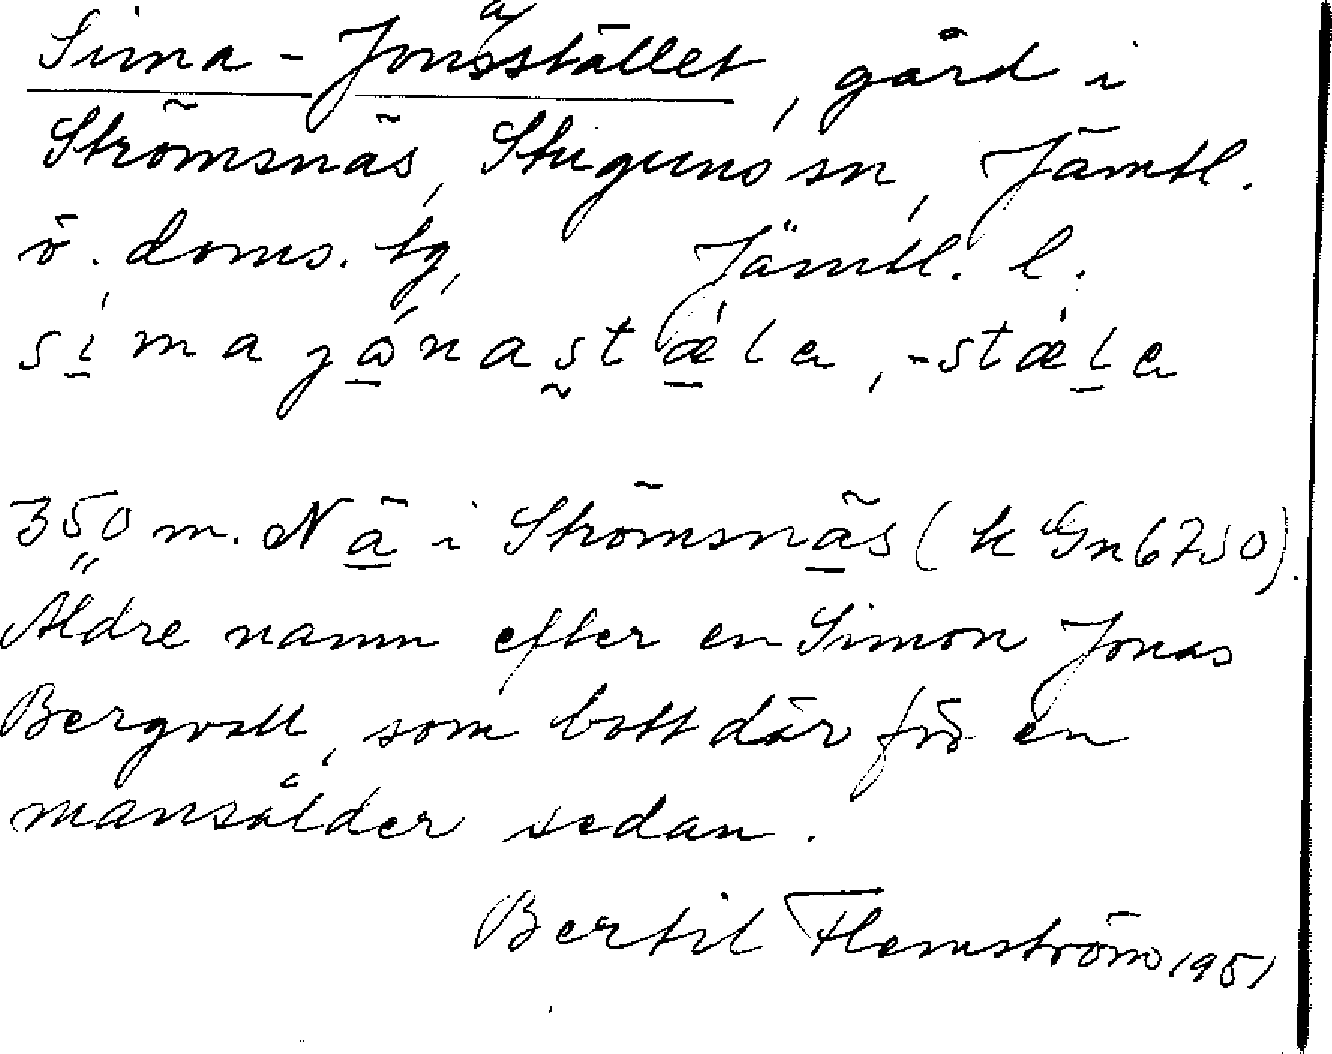 Sima-Jonasstället, gård i
Strömsnäs, Stuguns sn, Jämtl.
ö. doms. tg, Jämtl. l.
simajånastæla, -stæla
350 m. NÄ i Strömsnäs (k Gn 6750).
Äldre namn efter en Simon Jonas
Bergvall, som bott där för en
mansålder sedan.
Bertil Flemström 1951